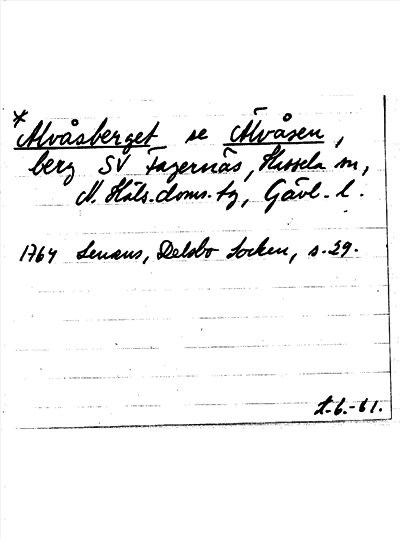 *
Alvåsberget se Älvåsen,
berg SV Fagernäs, Hassela sn,
N. Häls. doms. tg, Gävl. l.
1764 Lenæus, Delsbo Socken, s. 29.
L-6.-61.